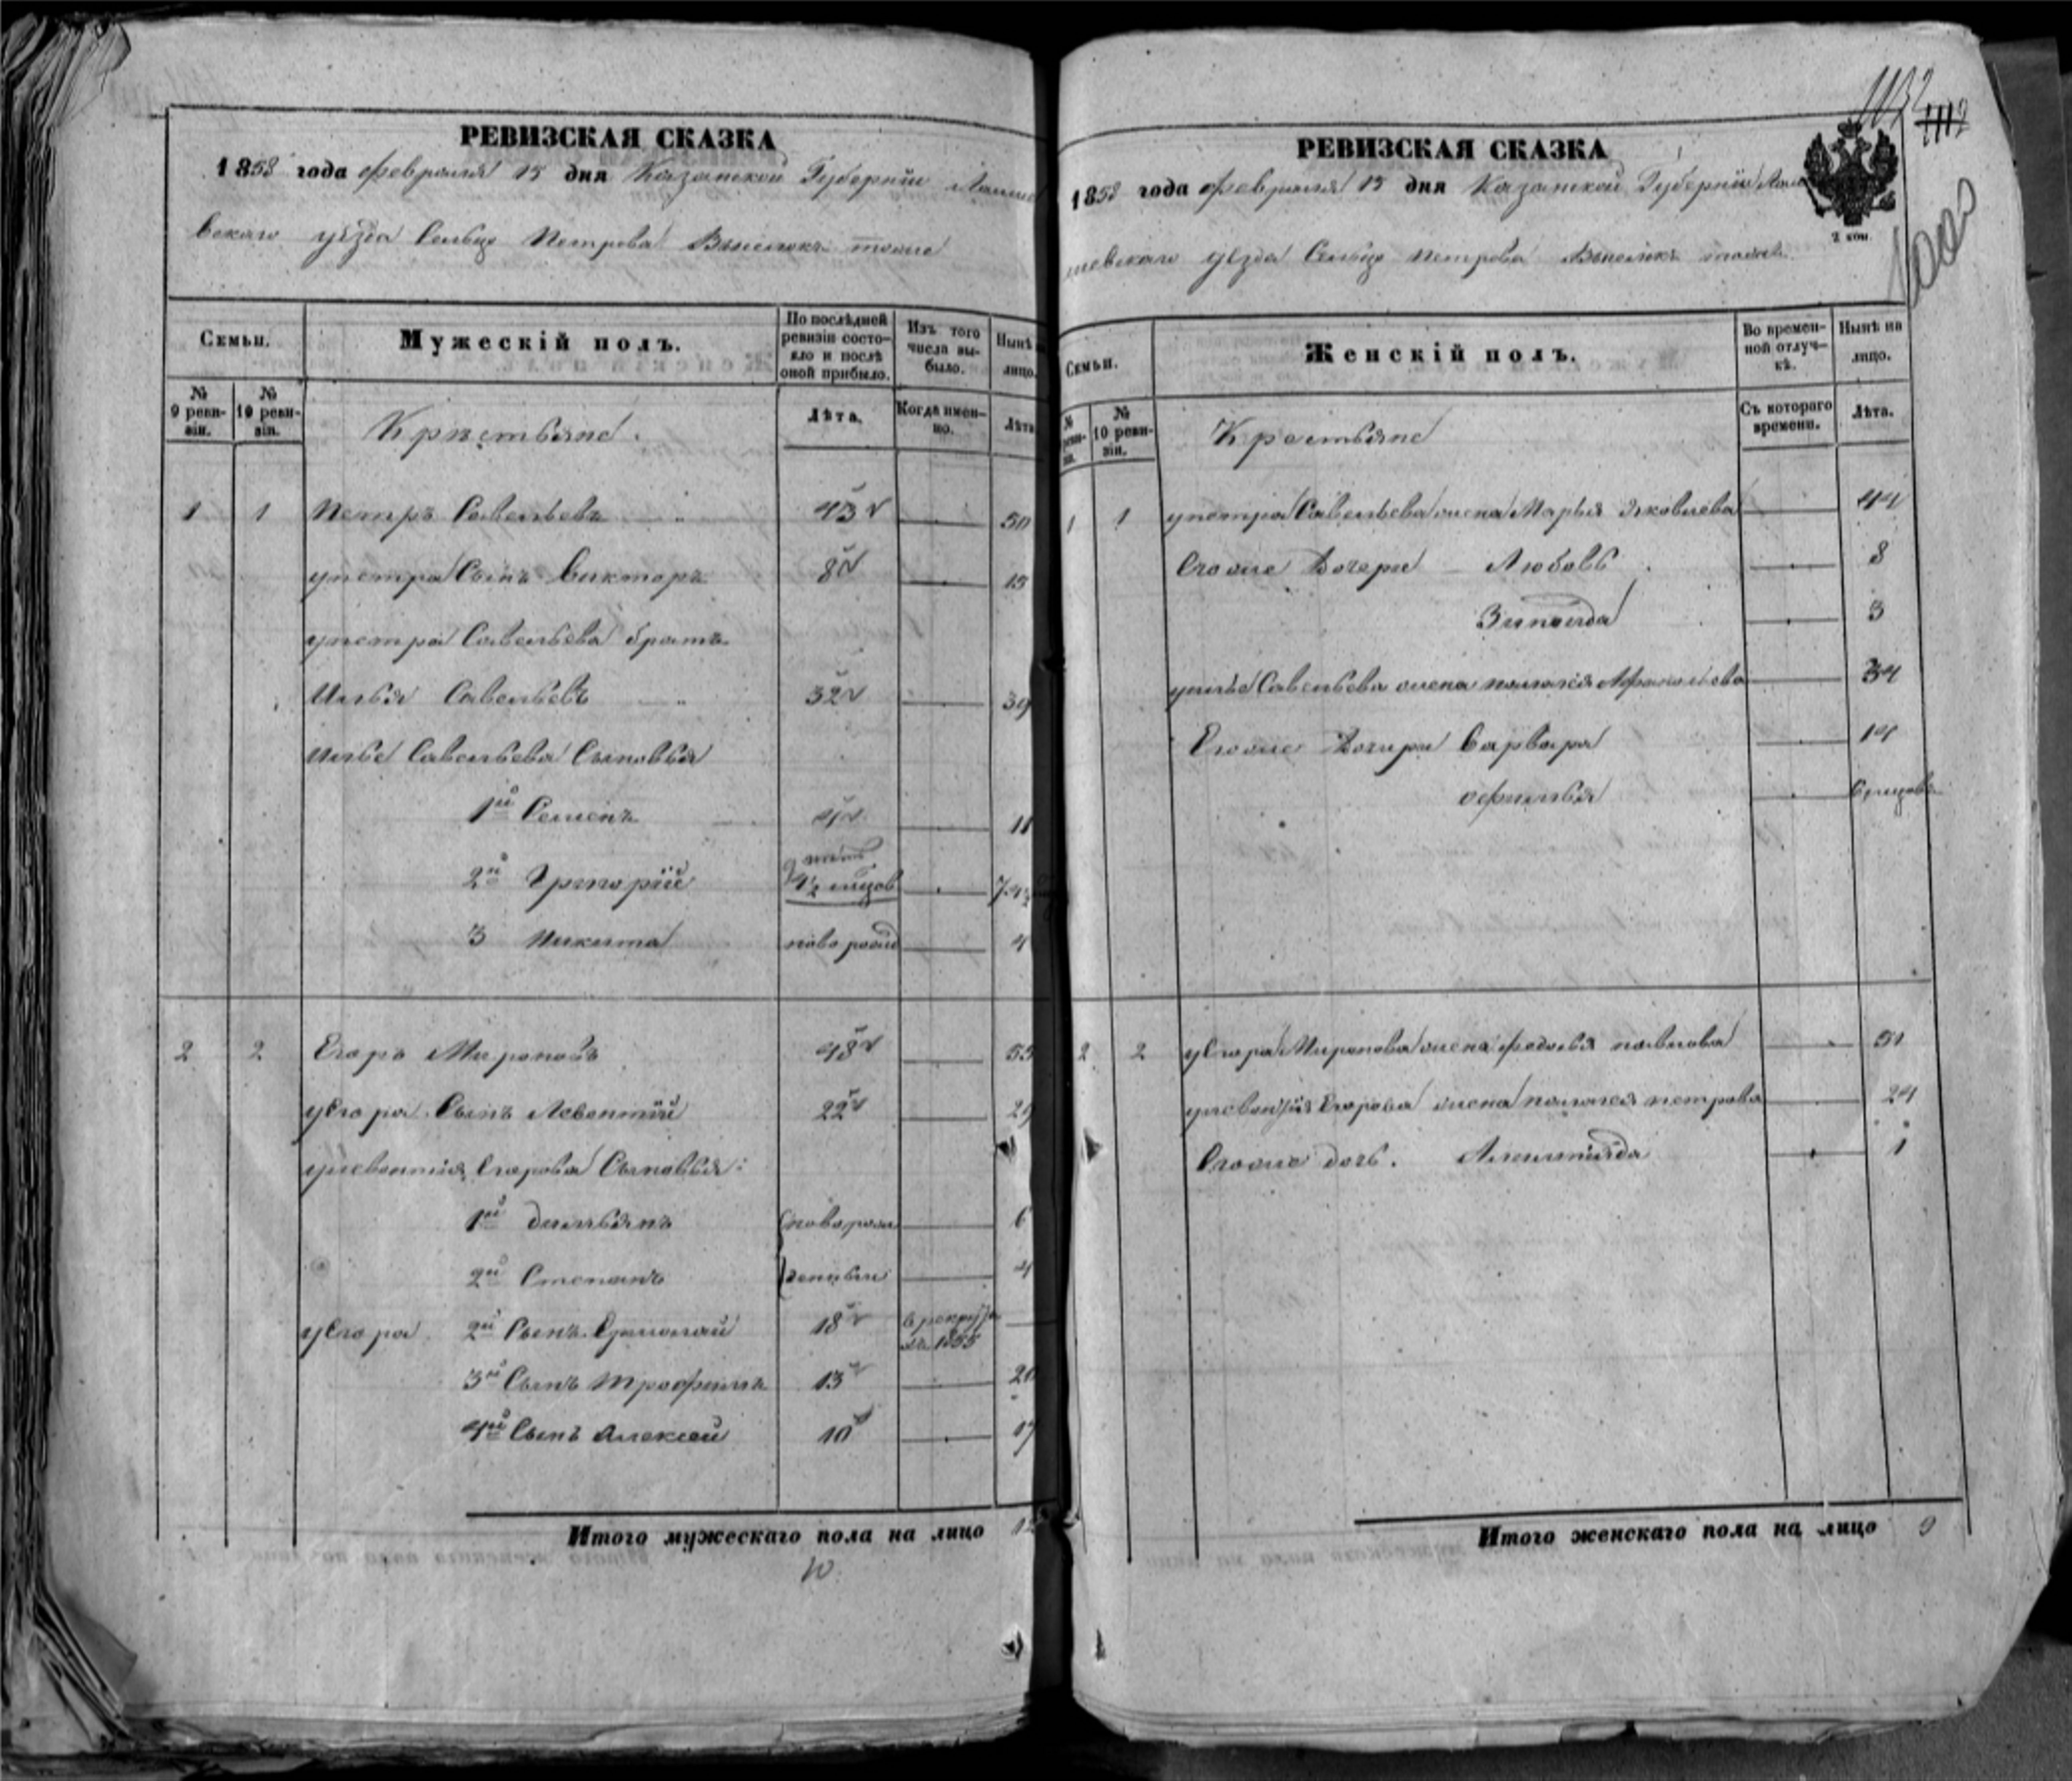 РЕВИЗСКАЯ СКАЗКА
1858 года февраля 15 дня Казанской Губерніи Лаише
вскаго уѣзда Сельцо Петрова Выселокъ тоже
Семьи.
Мужескій полъ.
По послѣдней ревизіи состояло и послѣ оной прибыло.
Изъ того числа выбыло.
Нынѣ
лицо.
№ 9 ревизіи.
№ 10 ревизіи.
Крестьяне.
Лѣта.
Когда именно.
Лѣта
1 1 Петръ Савельевъ 43 50
у петра Сынъ Викторъ 8 15
у петра Савельева братъ
Илья Савельевъ 32 39
Ильи Савельева Сыновья
1й Семенъ 4 11
2й Григорій 4½ мѣсцов
3 Никита ново рожд 4
2 2 Егоръ Мироновъ 48 55
у Егора Сынъ Левонтій 22 29
у левонтія Егорова Сыновья:
1й новорож 6
2й Степанъ денныи 4
у Егора 2й Сынъ 18 в рекрутахъ 1855
3й Сынъ Трофимъ 13 20
4й Сынъ Алексей 10 17
Итого мужескаго пола на лицо 12
1132
1112
РЕВИЗСКАЯ СКАЗКА
1858 года февраля 15 дня Казанской Губерніи Лаи
шевскаго уѣзда Сельцо Петрова Выселокъ тоже
2 коп.
Семьи.
Женскій полъ.
Во временной отлучкѣ.
Нынѣ на лицо.
№ реви-
№ 10 ревизіи.
Крестьяне
Съ котораго времени.
Лѣта.
1 1 у петра Савельева жена Марья Яковлева 44
Егоже Дочери Любовь 8
Зинаида 3
у ильи Савельева жена палагея 34
Егоже Дочери Варвара 14
офимья 6 мѣсцовъ
2 2 у Егора Миронова жена федосья павлова 51
у левонтія Егорова жена палагея петрова 24
Егоже дочь. 1
Итого женскаго пола на лицо 9